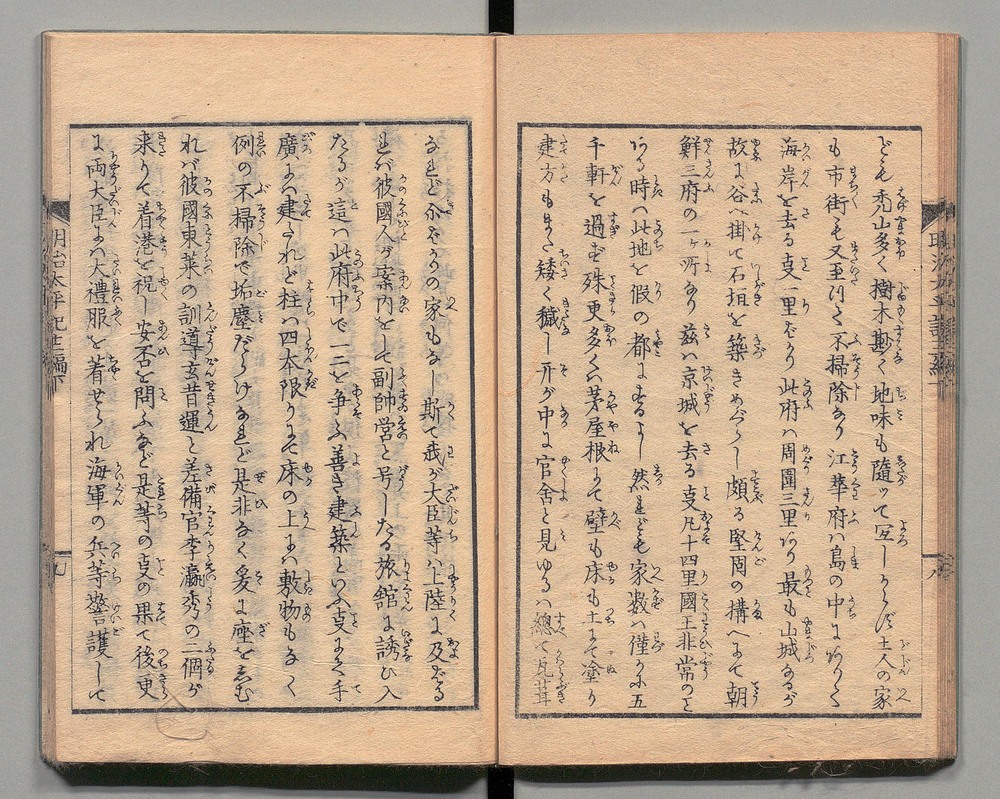 ども禿山多く樹木尠く地味も隨ツて宜しからず土人の家
も市街も又至つて不掃除なり江華府ハ島の中にありて
海岸を去る支一里ばかり此府ハ周圍三里あり最も山城なるが
故に谷へ掛て石垣を築きめぐらし頗る堅固の構へにて朝
鮮三府の一ケ所なり茲ハ京城を去る支凡十四里國王非常のと
ある時ハ此地を假の都にするよし然れども家数ハ僅かに五
千軒を過ず殊更多くハ茅屋根にて壁も床も土にて塗り
建方もまた矮く穢し其が中に官舎と見ゆるハ總て瓦葺
なれど亦ばかりの家もなし斯て我が大臣等ハ上陸に及ばる
れバ彼國人が案内をして副帥営と号したる旅館に誘ひ入
たるが這ハ此府中で一二を争ふ善き建築といふ支にて手
廣にハ建たれど柱ハ四本限りにて床の上にハ敷物もなく
例の不掃除で垢塵だらけなれど是非なく爰に座をしむ
れバ彼國東莱の訓導玄昔運と差備官李瀛秀の二個が
来りて着港を祝し安否を問ふなど是等の支の果て後更
に両大臣にハ大禮服を着せられ海軍の兵等警護して
明治太平記十二編下
九